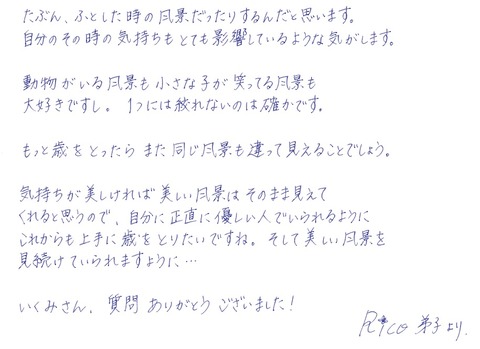 たぶん、ふとした時の風景だったりするんだと思います。
自分のその時の気持ちもとても影響しているような気がします。
動物がいる風景も小さな子が笑ってる風景も
大好きですし。1つには絞れないのは確かです。
もっと歳をとったらまた同じ風景も違って見えることでしょう。
気持ちが美しければ美しい風景はそのまま見えて
くれると思うので、自分に正直に優しい人でいられるように
これからも上手に歳をとりたいですね。そして美しい風景を
見続けていられますように…
いくみさん、質問ありがとうございました！
Rico 弟子より.